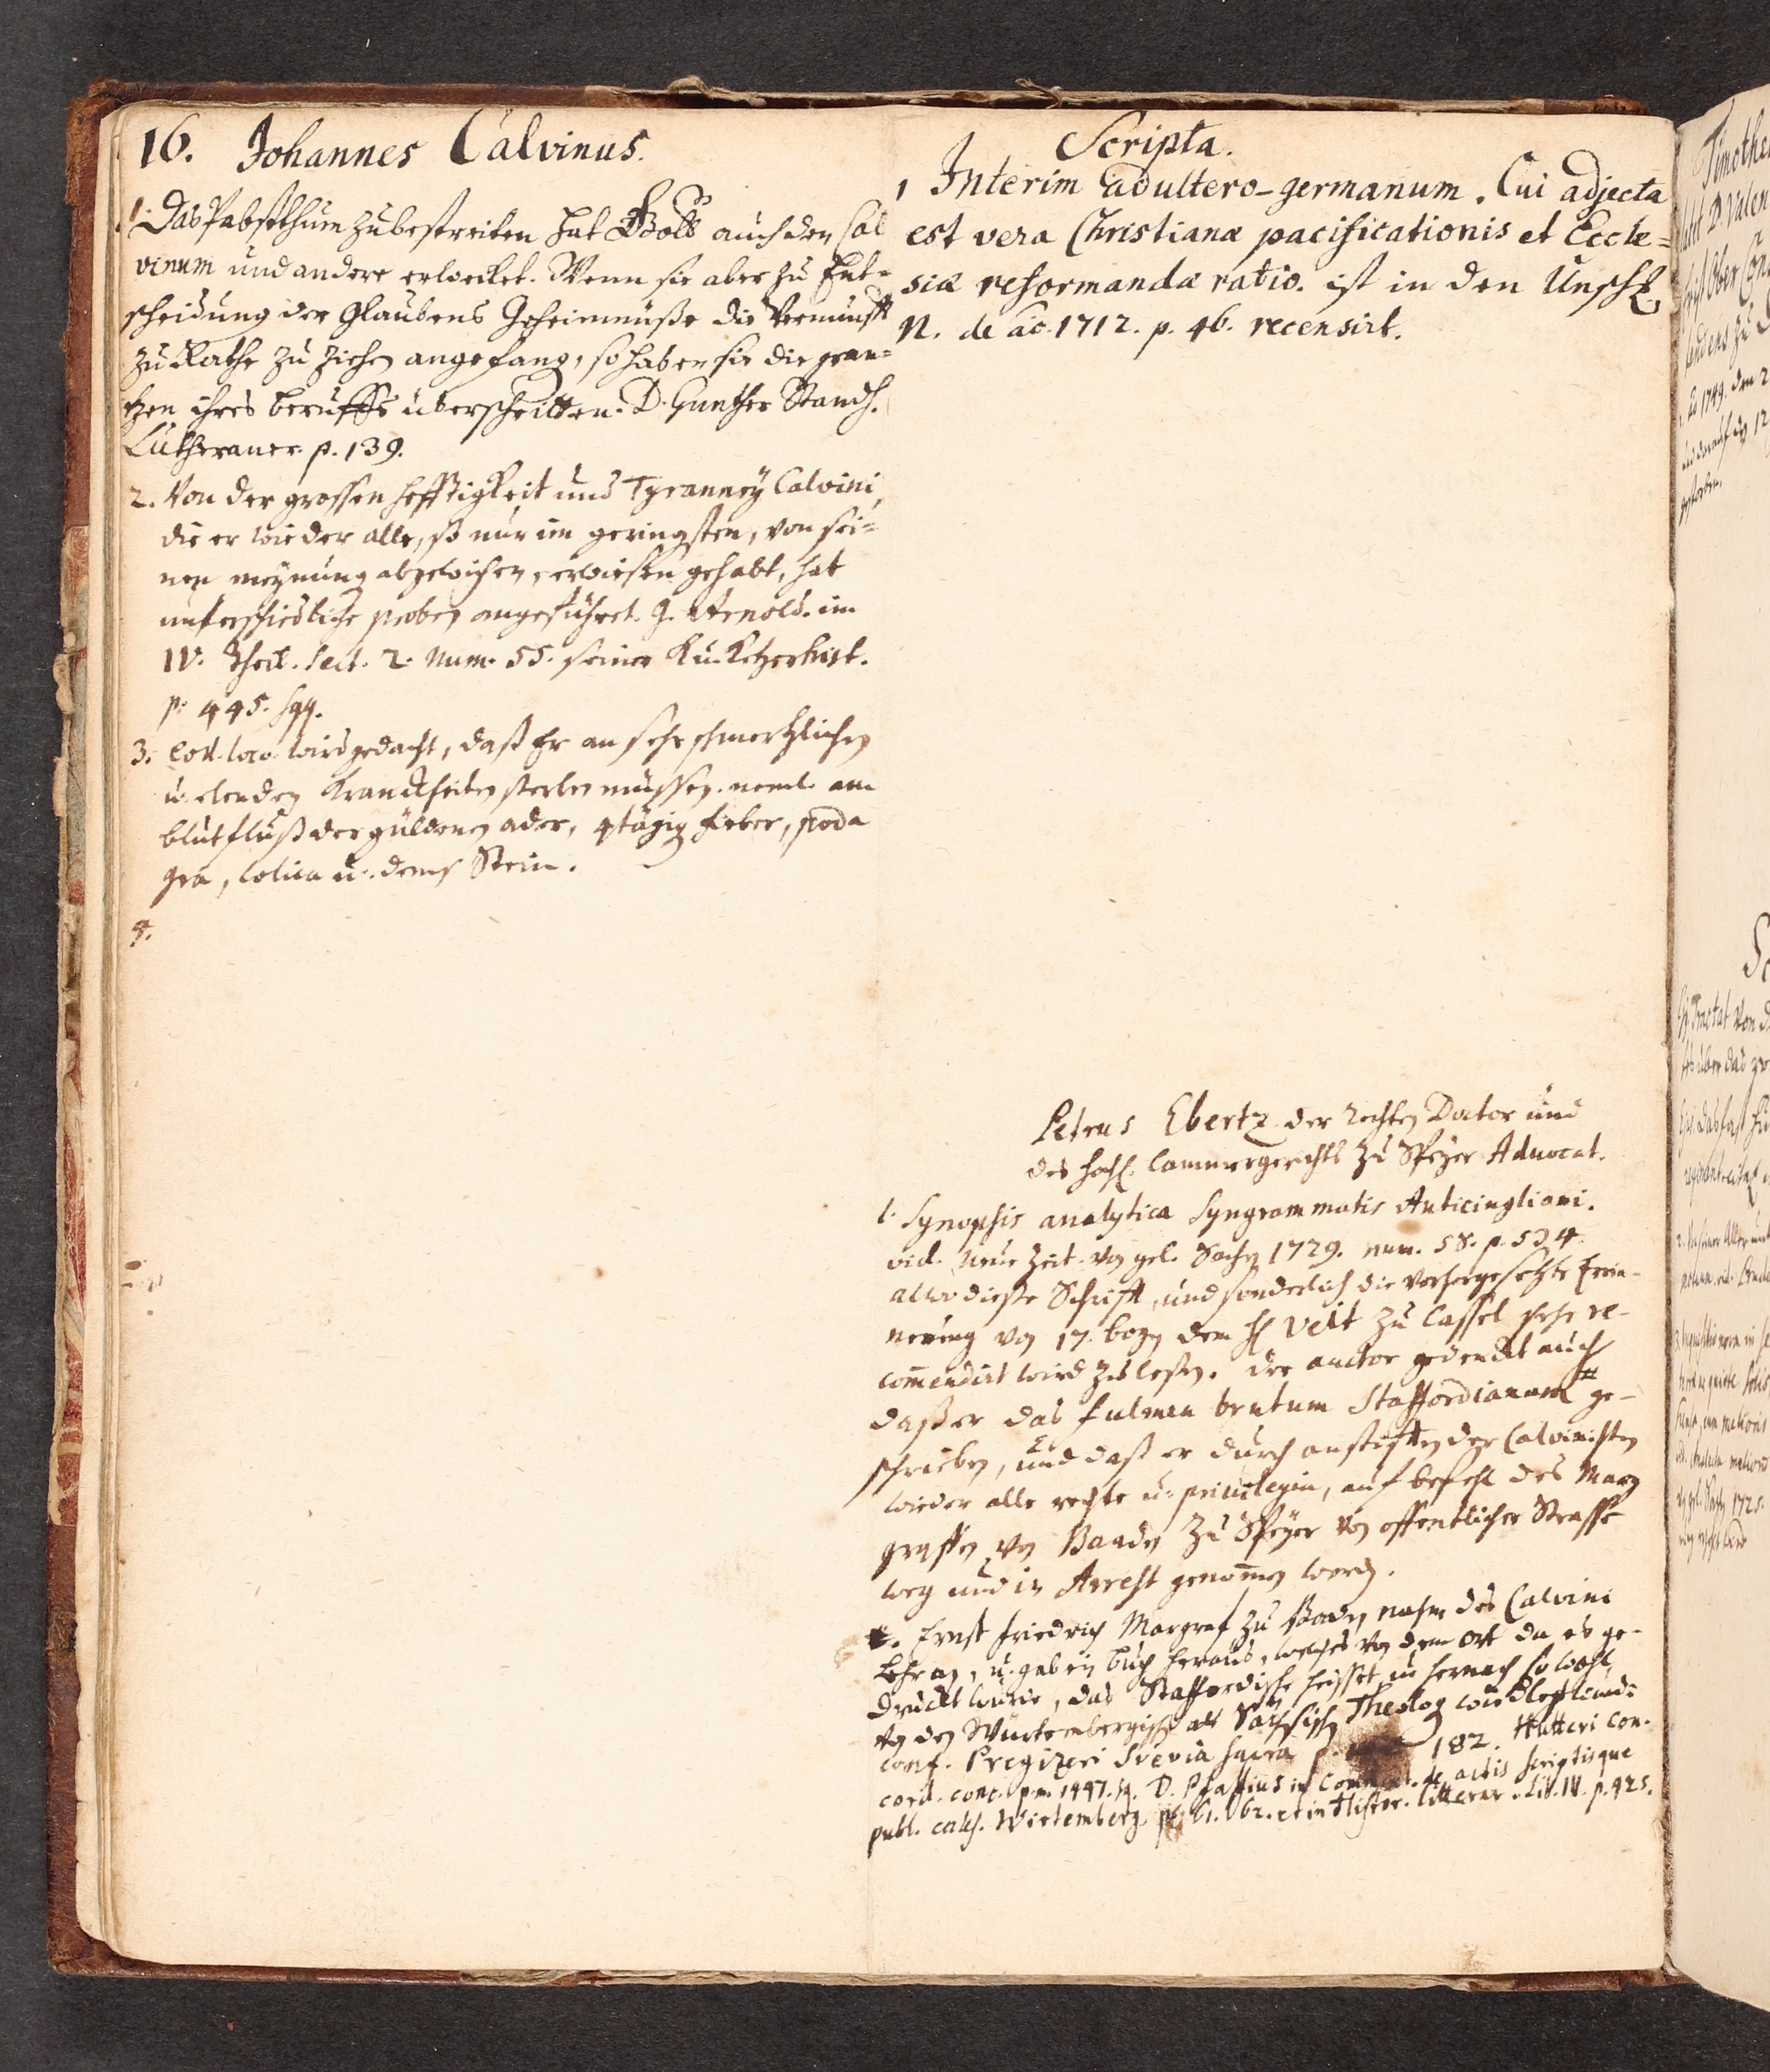 16. Johannes Calvinus.
1. Das Pabstthum zubestreiten hat Gott auch den Cal
vinum und andere erwecket. Wenn sie aber zu Ent=
scheidung der Glaubens Geheimnüße die Vernunfft
zu Rathe zu ziehen angefang, so haben sie die gren=
tzen ihres beruffs überschritten. D. Gunther Standh.
Lutheraner p. 139.
2. Von der grossen hefftigkeit und Tyranney Calvini,
die er wieder alle, so nur im geringsten, von sei=
ner meynung abgewichen, erwiesen gehabt, hat
unterschiedliche proben angeführet. G. Arnold. im
IV. Theil. Sect. 2. Num. 55. seiner K. u. Ketzerhist.
p. 445. sqq.
3. eod. loco wird gedacht, daß Er an sehr schmertzlichen
u. elenden Kranckheiten sterben müssen. neml. am
blutfluß der güldenen ader, 4tägig fieber, poda
gra, colica u. dem Stein.
4.
Scripta.
1 Interim adultero-germanum. Cui adjecta
est vera Christianæ pacificationis et Eccle=
siæ reformandæ ratio. ist in den Unsch.
N. de ao. 1712. p. 46. recensirt.
Petrus Ebertz der rechten Doctor und
des Cammergerichts zu Speyer Advocat.
1. Synopsis analytica Syngrammatis Anticingliani.
vid. Neue Zeit. von gel. Sachen 1729. num. 58. p. 534.
allwo dieße Schrifft, und sonderlich die vorhergesetzte Erin-
nerung von 17. bogen dem H. Veit zu Cassel sehr re-
commendirt wird zu lesen. Der auctor gedenckt auch
daß er das fulmen brutum Staffordianum # ge-
schrieben, und daß er durch anstifften der Calvinisten
wieder alle rechte u. privilegia, auf befehl des Marg
graffen von Baaden zu Speyer von offentlicher Strasse
weg und in Arrest genommen word.
#. Ernst Friedrich Margraf zu Baden nahm des Calvini
Lehr an, u. gab ein buch heraus, welches von dem ort da es ge-
druckt wurde, das Staffordische heisset, u. hernach so wohl
von den Würtembergisch. als Sächsisch. Theolog
conf. Pregizeri Svevia sacra p. 182. Hutteri con-
cord. conc. p.m. 1447. sq. D. Pfaffius in Comment. de actis scriptisque
publ. eccles. Wirtemberg. p. 61. 62. et in Histor. litterar. Lib. IV. p. 425.